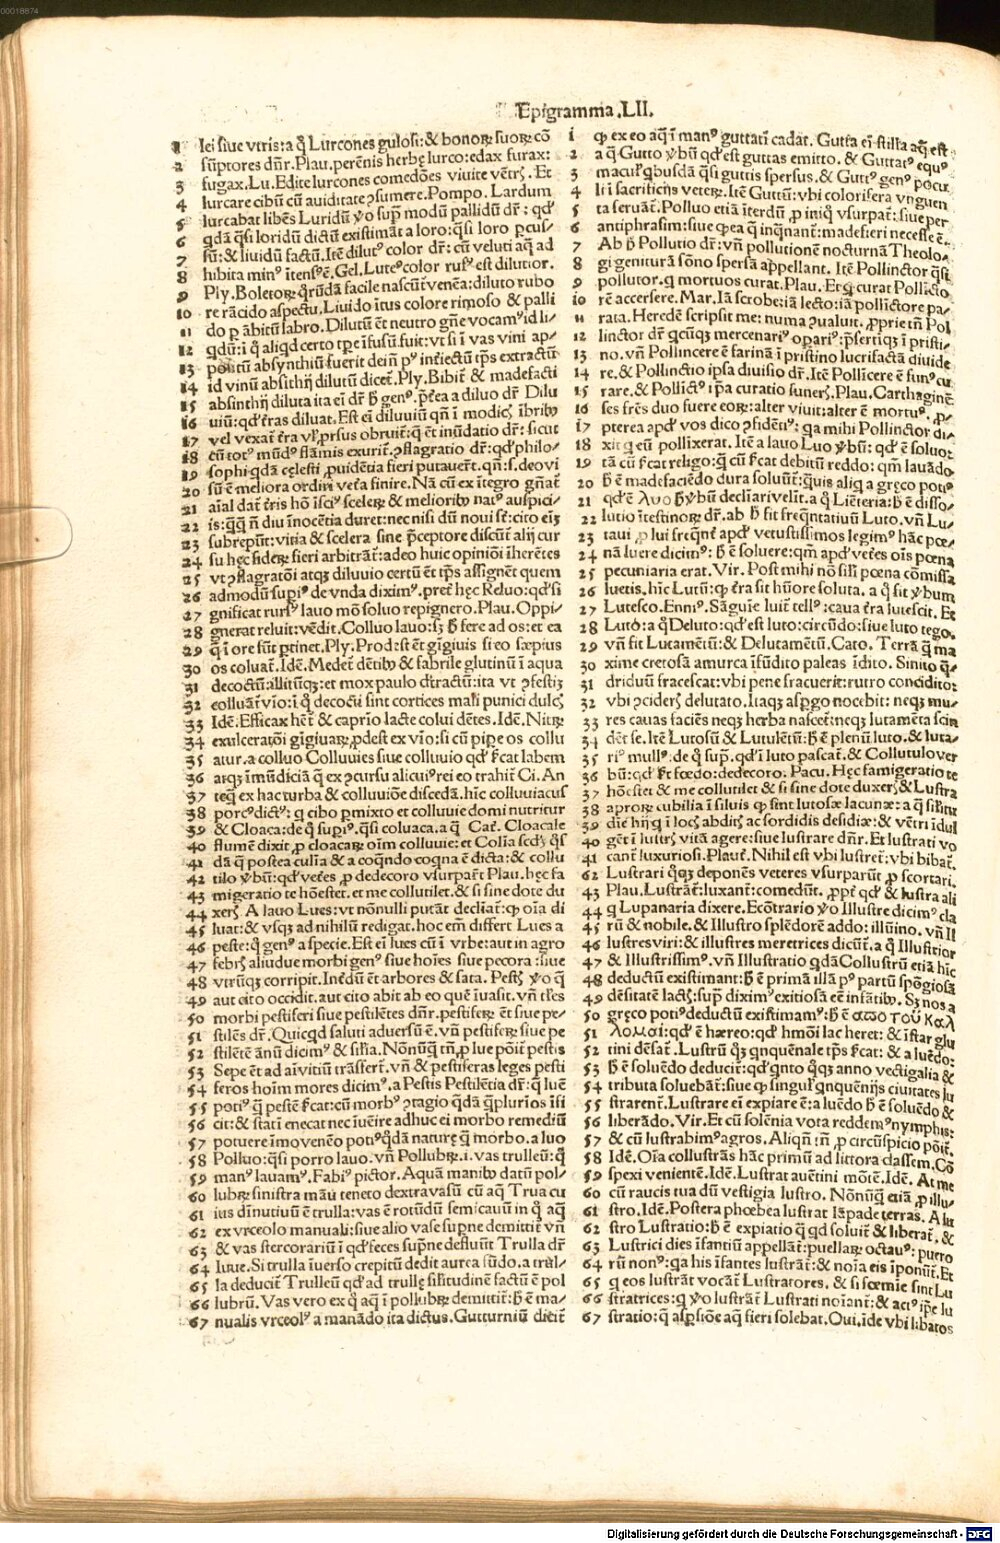 00018874
Epigramma.LII.
1 lei siue vtris: a q̃ Lurcones gulosi: & bonoꝝ suoꝝ cō
2 sūptores dñr. Plau. perēnis herbę lurco: edax furax:
3 fugax. Lu. Edite lurcones comedōes viuite
4 lurcare cibū cū auiditate ꝯsumere. Pompo. Lardum
5 lurcabat libēs Luridū ꝟo sup̃ modū pallidū dr̃: qd̕
6 qdā q̃si loridū dictū existimāt a loro: q̃si loro
7 sū: & liuidū factū. Itē dilutꝰ color dr̃: cū veluti aq̃ ad
8 hibita minꝰ ītensꝰ ē. Gel. Luteꝰ color rufꝰ est dilutior.
9 Ply. Boletoꝝ facile nascūt̃ venēa: diluto rubo
10 re rācido aspectu. Liuido ītus colore rimoso & palli
11 do ꝑ ābitū labro. Dilutū ēt neutro gñe vocamꝰ id li
12 qdū: ī q̃ aliqd certo tꝑe īfusū fuit: vt si ī vas vini ap
13 positū absynthiū fuerit dein̄ pꝰ tp̄s extractū
14 id vinū absithij dilutū dicet̃. Ply. Bibit̃ & madefacti
15 absinthij diluta ita ei dr̃ genꝰ. p̃tea a diluo dr̃ Dilu
16 uiū: qd̕ t̃ras diluat. Est ei diluuiū qñ ī modicꝭ
17 vel vexat̃ t̃ra vl̕ ꝓrsus obruit̃: q̃ ēt inūdatio dr̃: sicut
18 cū totꝰ mūdꝰ flāmis exurit̃ ꝯflagratio dr̃: qd̕ philo
19 sophi qdā cęlesti ꝓuidētia fieri putauer̃t. qñ: s. deo vi
20 sū ē meliora ordiri vet̃a finire. Nā cū ex ītegro gñat̃
21 aīal dat̃ t̃ris hō īsciꝰ sceleꝝ & melioribꝰ natꝰ auspici
22 is: q̃ n̄ diu īnocētia duret: nec nisi dū noui st̃: cito eis
23 subrepūt: vitia & scelera sine p̃ceptore discūt̃ alij cur
24 su hęc sideꝝ fieri arbitrāt̃: adeo huic opiniōi īherētes
25 vt ꝯflagratōi atqꝫ diluuio certū ēt tp̄s assignēt quem
26 admodū supiꝰ de vnda diximꝰ. pret̃ hęc Reluo: qd̕ si
27 gnificat rursꝰ lauo mō soluo repignero. Plau. Oppi
28 gnerat reluit: vēdit. Colluo lauo: sꝫ fere ad os: et ea
29 q̃ ī ore sūt ptinet. Ply. Prod:st ēt gīgiuis si eo sæpius
30 os coluat̃. Idē. Medet̃ dētibꝰ & fabrile glutinū ī aqua
31 decoctū: allitūqꝫ: et mox paulo dt̃ractū: ita vt ꝯfestiꝫ
32 colluāt̃ vīo: ī q̃ decocti sint cortices mali punici dulcꝭ
33 Idē: Efficax het̃ & caprīo lacte colui dētes. Idē. Nitꝝ
34 exulceratōi gīgiuaꝝ ꝓdest ex vīo: si cū pipe os collu
35 atur. a colluo Colluuies siue colluuio qd̕ s̃cat labem
36 atqꝫ īmūdiciā q̃ ex ꝯcursu alicuiꝰ rei eo trahit̃ Ci. An
37 teq̃ ex hac turba & colluuiōe discedā. hīc colluuiacus
38 porcꝰ dictꝰ: q cibo ꝑmixto et colluuie domi nutritur
39 & Cloaca: de q̃ supiꝰ. q̃si coluaca. a q̃ Cat̃. Cloacale
40 flumē dixit ꝓ cloacaꝝ oīm colluuie: et Colīa scd̕ꝫ q̃s
41 dā q̃ postea culīa & a coq̃ndo coqna ē dicta: & collu
42 tilo ꝟbū: qd̕ vet̃es ꝓ dedecoro vsurpar̃t Plau. hęc fa
43 migeratio te hōestet. et me collutilet. & si sine dote du
44 xerꝭ. A lauo Lues: vt nōnulli putāt decliat̃: ꝙ oīa di
45 luat: & vsqꝫ ad nihilū redigat. hoc em̄ differt Lues a
46 peste: q̃ genꝰ a specie. Est ei lues cū ī vrbe: aut in agro
47 febrꝭ aliudue morbi genꝰ siue hoīes siue pecora: siue
48 vtrūqꝫ corripit. Inēdū ēt arbores & sata. Pestꝭ ꝟo q̃
49 aut cito occidit. aut cito abit ab eo quē īuasit. vñ t̃les
50 morbi pestiferi siue pestilētes dñr. pestifeꝝ ēt siue pe
51 stilēs dr̃. Quicqd saluti aduersū ē. vñ pestifeꝝ siue pe
52 stilētē ānū dicimꝰ & sil̕ia. Nōnūq̃ tñ, ꝓ lue pōit̃ pestis
53 Sępe ēt ad ai vitiū trāsfert̃. vñ & pestiferas leges pesti
54 feros hoīm mores dicimꝰ. a Pestis Pestilētia dr̃: q̃ luē
55 potiꝰ q̃ pestē s̃cat: cū morbꝰ ꝯtagio qdā q̃plurīos īfi
56 cit: & statī enecat nec īuēire adhuc ei morbo remediū
57 potuere īmo venēo potiꝰ qdā naturę q̃ morbo. a luo
58 Polluo: q̃si porro lauo. vñ Pollubꝝ. i. vas trulleū: q̃
59 manꝰ lauamꝰ. Fabiꝰ pictor. Aquā manibꝰ datū pol
60 lubꝝ sinistra māu teneto dextra vasū cū aq̃ Trua cu
61 ius dīnutiuū ē trulla: vas ē rotūdū semicauū in q̃ aq̃
62 ex vrceolo manuali: siue alio vase sup̃ne demittit̃ vñ
63 & vas stercorariū ī qd̕ feces sup̃ne defluūt Trulla dr̃
64 Iuue. Si trulla īuerso crepitū dedit aurea fūdo. a trul
65 la deducit̃ Trulleū qd̕ ad trullę sil̕itudinē factū ē pol
66 lubrū. Vas vero ex q̃ aq̃ ī pollubꝝ demittit̃: ma
67 nualis vrceolꝰ a manādo ita dictus. Gutturniū dicit̃
1 ꝙ ex eo aq̃ ī manꝰ guttatī cadat. Gutta ei stilla aq̃ est
2 a q̃ Gutto ꝟbū qd̕ est guttas emitto. & Guttatꝰ equꝰ
3 maculꝭ qbusdā q̃si guttis spersus. & Guttꝰ genꝰ pocu
4 li ī sacrificiis veteꝝ. Itē Guttū: vbi colorifera vnguen
5 ta seruāt̃. Polluo etiā īterdū, ꝓ iniq̃ vsurpat̃: siue per
6 antiphrasim: siue ꝙ ea q̃ inq̃nant̃: madefieri necesse ē.
7 Ab Pollutio dr̃: vñ pollutionē nocturnā Theolo
8 gi geniturā sōno spersā appellant. Itē Pollinctor q̃si
9 pollutor. q mortuos curat. Plau. Et q curat Pollicto
10 rē accersere. Mar. Iā scrobe: iā lecto: iā pollictore pa
11 rata. Heredē scripsit me: numa ꝯualuit. ꝓprie tñ Pol
12 linctor dr̃ qcūqꝫ mercenariꝰ opariꝰ: p̃sertiqꝫ ī pristi
13 no. vñ Pollincere ē farinā ī pristino lucrifactā diuide
14 re. & Pollinctio ipsa diuisio dr̃. Itē Pollicere ē funꝰ cu
15 rare. & Pollictiꝰ ip̄a curatio funerꝭ. Plau. Carthaginē
16 ses frēs duo fuere eoꝝ: alter viuit: alter ē mortuꝰ. ꝓ
17 pterea apd̕ vos dico ꝯfidētiꝰ: qa mihi Pollinctor di
18 xit q eū pollixerat. Itē a lauo Luo ꝟbū: qd̕ ē soluo:
19 tā cū s̃cat religo: q̃ cū s̃cat debitū reddo: qm̄ lauādo
20 ē madefaciēdo dura soluūt̃: quis aliq a gręco potiꝰ
21 qd̕ ē λυο ꝟbū decliari velit̃. a q̃ Liēteria: ē disso
22 lutio ītestinoꝝ dr̃. ab fit freq̃ntatiuū Luto. vñ Lu
23 taui, ꝓ lui freq̃nt̃ apd̕ vetustissimos legimꝰ hāc pœ
24 nā luere dicimꝰ: ē soluere: qm̄ apd̕ vet̃es oīs pœna
25 pecuniaria erat. Vir. Post mihi nō sil̕i pœna cōmissa
26 luetis. hīc Lutū: ꝙ t̃ra sit hūore soluta. a q̃ fit ꝟbum
27 Lutesco. Enniꝰ. Sāguīe luit̃ tellꝰ: caua t̃ra lutescit. Et
28 Luto: a q̃ Deluto: qd̕ est luto: circūdo: siue luto tego.
29 vñ fit Lutamētū: & Delutamētū. Cato. Terrā q̃ ma
30 xime cretosā amurca īfūdito paleas īdito. Sinito q̃
31 driduū fracescat: vbi pene fracuerit: rutro concidito:
32 vbi ꝯciderꝭ delutato. Itaqꝫ aspgo nocebit: neqꝫ mu
33 res cauas faciēs neqꝫ herba nascet̃: neqꝫ lutamēta scin
34 dēt se. Itē Lutosū & Lutulētū: ē plenū luto. & luta
35 riꝰ mullꝰ: de q̃ sup̃. qd̕ ī luto pascat̃. & Collutulo ver
36 bū: qd̕ s̃t fœdo: dedecoro. Pacu. Hęc famigeratio te
37 hōestet & me collutilet & si sine dote duxerꝭ & Lustra
38 aproꝝ cubilia ī siluis ꝙ sint lutosæ lacunæ: a q̃ sil̕itur
39 die hij q ī locꝭ abditꝭ ac sordidis desidiæ: & vētri īdul
40 gēt ī lustrꝭ vitā agere: siue lustrare dñr. Et lustrati vo
41 cant̃ luxuriosi. Plaut̃. Nihil est vbi lustret̃: vbi bibat̃.
42 Lustrari qqꝫ deponēs veteres vsurparūt ꝓ scortari.
43 Plau. Lustrāt̃: luxant̃: comedūt. ꝓpt̃ qd̕ & lustra ali
44 q Lupanaria dixere. Ecōtrario ꝟo Illustre dicimꝰ cla
45 rū & nobile. & Illustro splēdorē addo: illūino. vñ Il
46 lustres viri: & illustres meretrices dicūt̃. a q̃ Illustrior
47 & Illustrissimꝰ. vñ Illustratio qdā Collustrū etiā hīc
48 deductū existimant: ē primā illā pꝰ partū spōgiosā
49 dēsitatē lactꝭ: sup̃ diximꝰ exitiosā eē infātibꝰ. Sꝫ nos a
50 gręco potiꝰ deductū existimamꝰ: ē απο τοῦ καλ
51 λομαι: qd̕ ē hæreo: qd̕ hmōi lac heret: & īstar glu
52 tini dēsat̃. Lustrū qꝫ qnquēnale tp̄s s̃cat: & a luēdo:
53 ē soluēdo deducit̃: qd̕ qnto qqꝫ anno vectigalia &
54 tributa soluebāt̃: siue ꝙ singulꝭ qnquēnijs ciuitates lu
55 strarent̃. Lustrare ei expiare ē: a luēdo ē soluēdo &
56 liberādo. Vir. Et cū solēnia vota reddemꝰ nymphis:
57 & cū lustrabimꝰ agros. Aliqñ tñ, ꝓ circūspicio pōit̃.
58 Idē. Oīa collustrās hāc primū ad littora classem. Cō
59 spexi venientē. Idē. Lustrat auētini mōtē. Idē. At me
60 cū raucis tua dū vestigia lustro. Nōnūq̃ etiā, ꝓ illu
61 stro. Idē. Postera phœbea lustrat lāpade terras. A lu
62 stro Lustratio: ē expiatio q̃ qd soluit̃ & liberat̃. &
63 Lustrici dies īfantiū appellāt̃: puellaꝝ octauꝰ: puero
64 rū nonꝰ: qa his īfantes lustrāt̃: & noīa eis īponūt̃. Et
65 q eos lustrāt vocāt̃ Lustratores. & si fœmīe sint Lu
66 stratrices: q ꝟo lustrāt̃ Lustrati noīant̃: & actꝰ ip̄e lu
67 stratio: q̃ aspsiōe aq̃ fieri solebat. Oui. ide vbi libatos
Digitalisierung gefördert durch die Deutsche Forschungsgemeinschaft - DFG